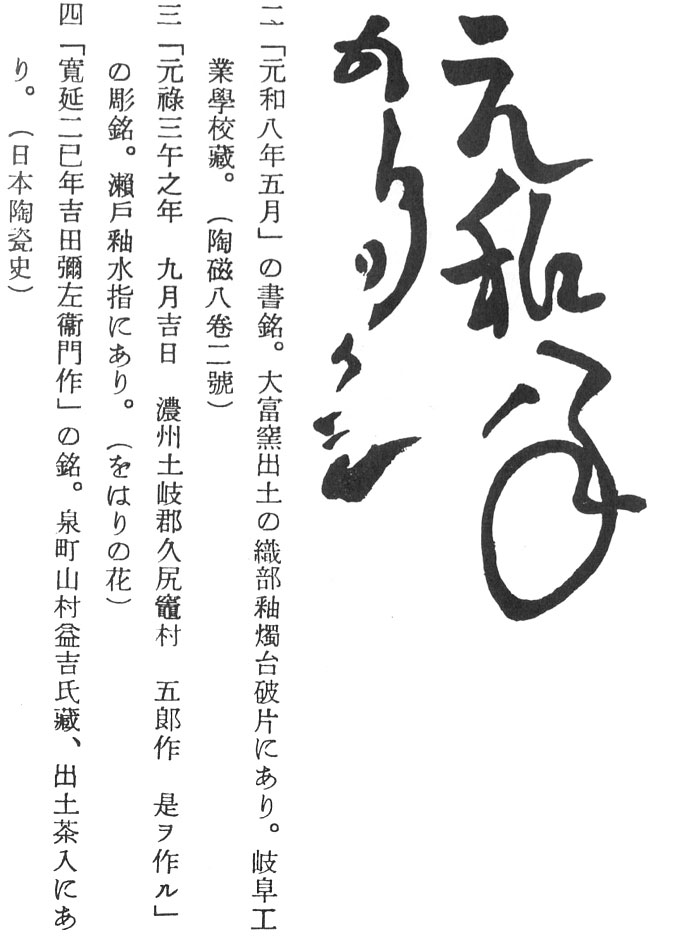 元和八年
五月日
二、「元和八年五月」の書銘。大富窯出土の織部釉燭台破片にあり。岐阜工
業學校藏。(陶磁八卷二號)
三「元祿三午之年　九月吉日　濃州土岐郡久尻竈村　五郎作　是ヲ作ル」
の彫銘。瀨戶釉水指にあり。(をはりの花)
四「寬延二巳年吉田彌左衞門作」の銘。泉町山村益吉氏藏、出土茶入にあ
り。(日本陶瓷史)